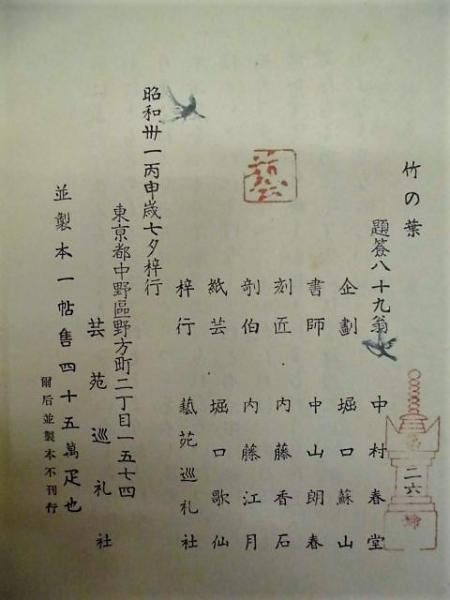 竹の葉
題簽八十九翁 中村春堂
企劃 堀口蘇山
書師 中山朗春
刻匠 内藤香石
剞伯 内藤江月
紙芸 堀口歌仙
梓行 藝苑巡礼社
昭和卅一丙申歳七夕梓行
東京都中野區野方町二丁目一五七四
芸苑巡礼社
並製本一帖售四十五萬疋也
爾后並製本不刊行
二六